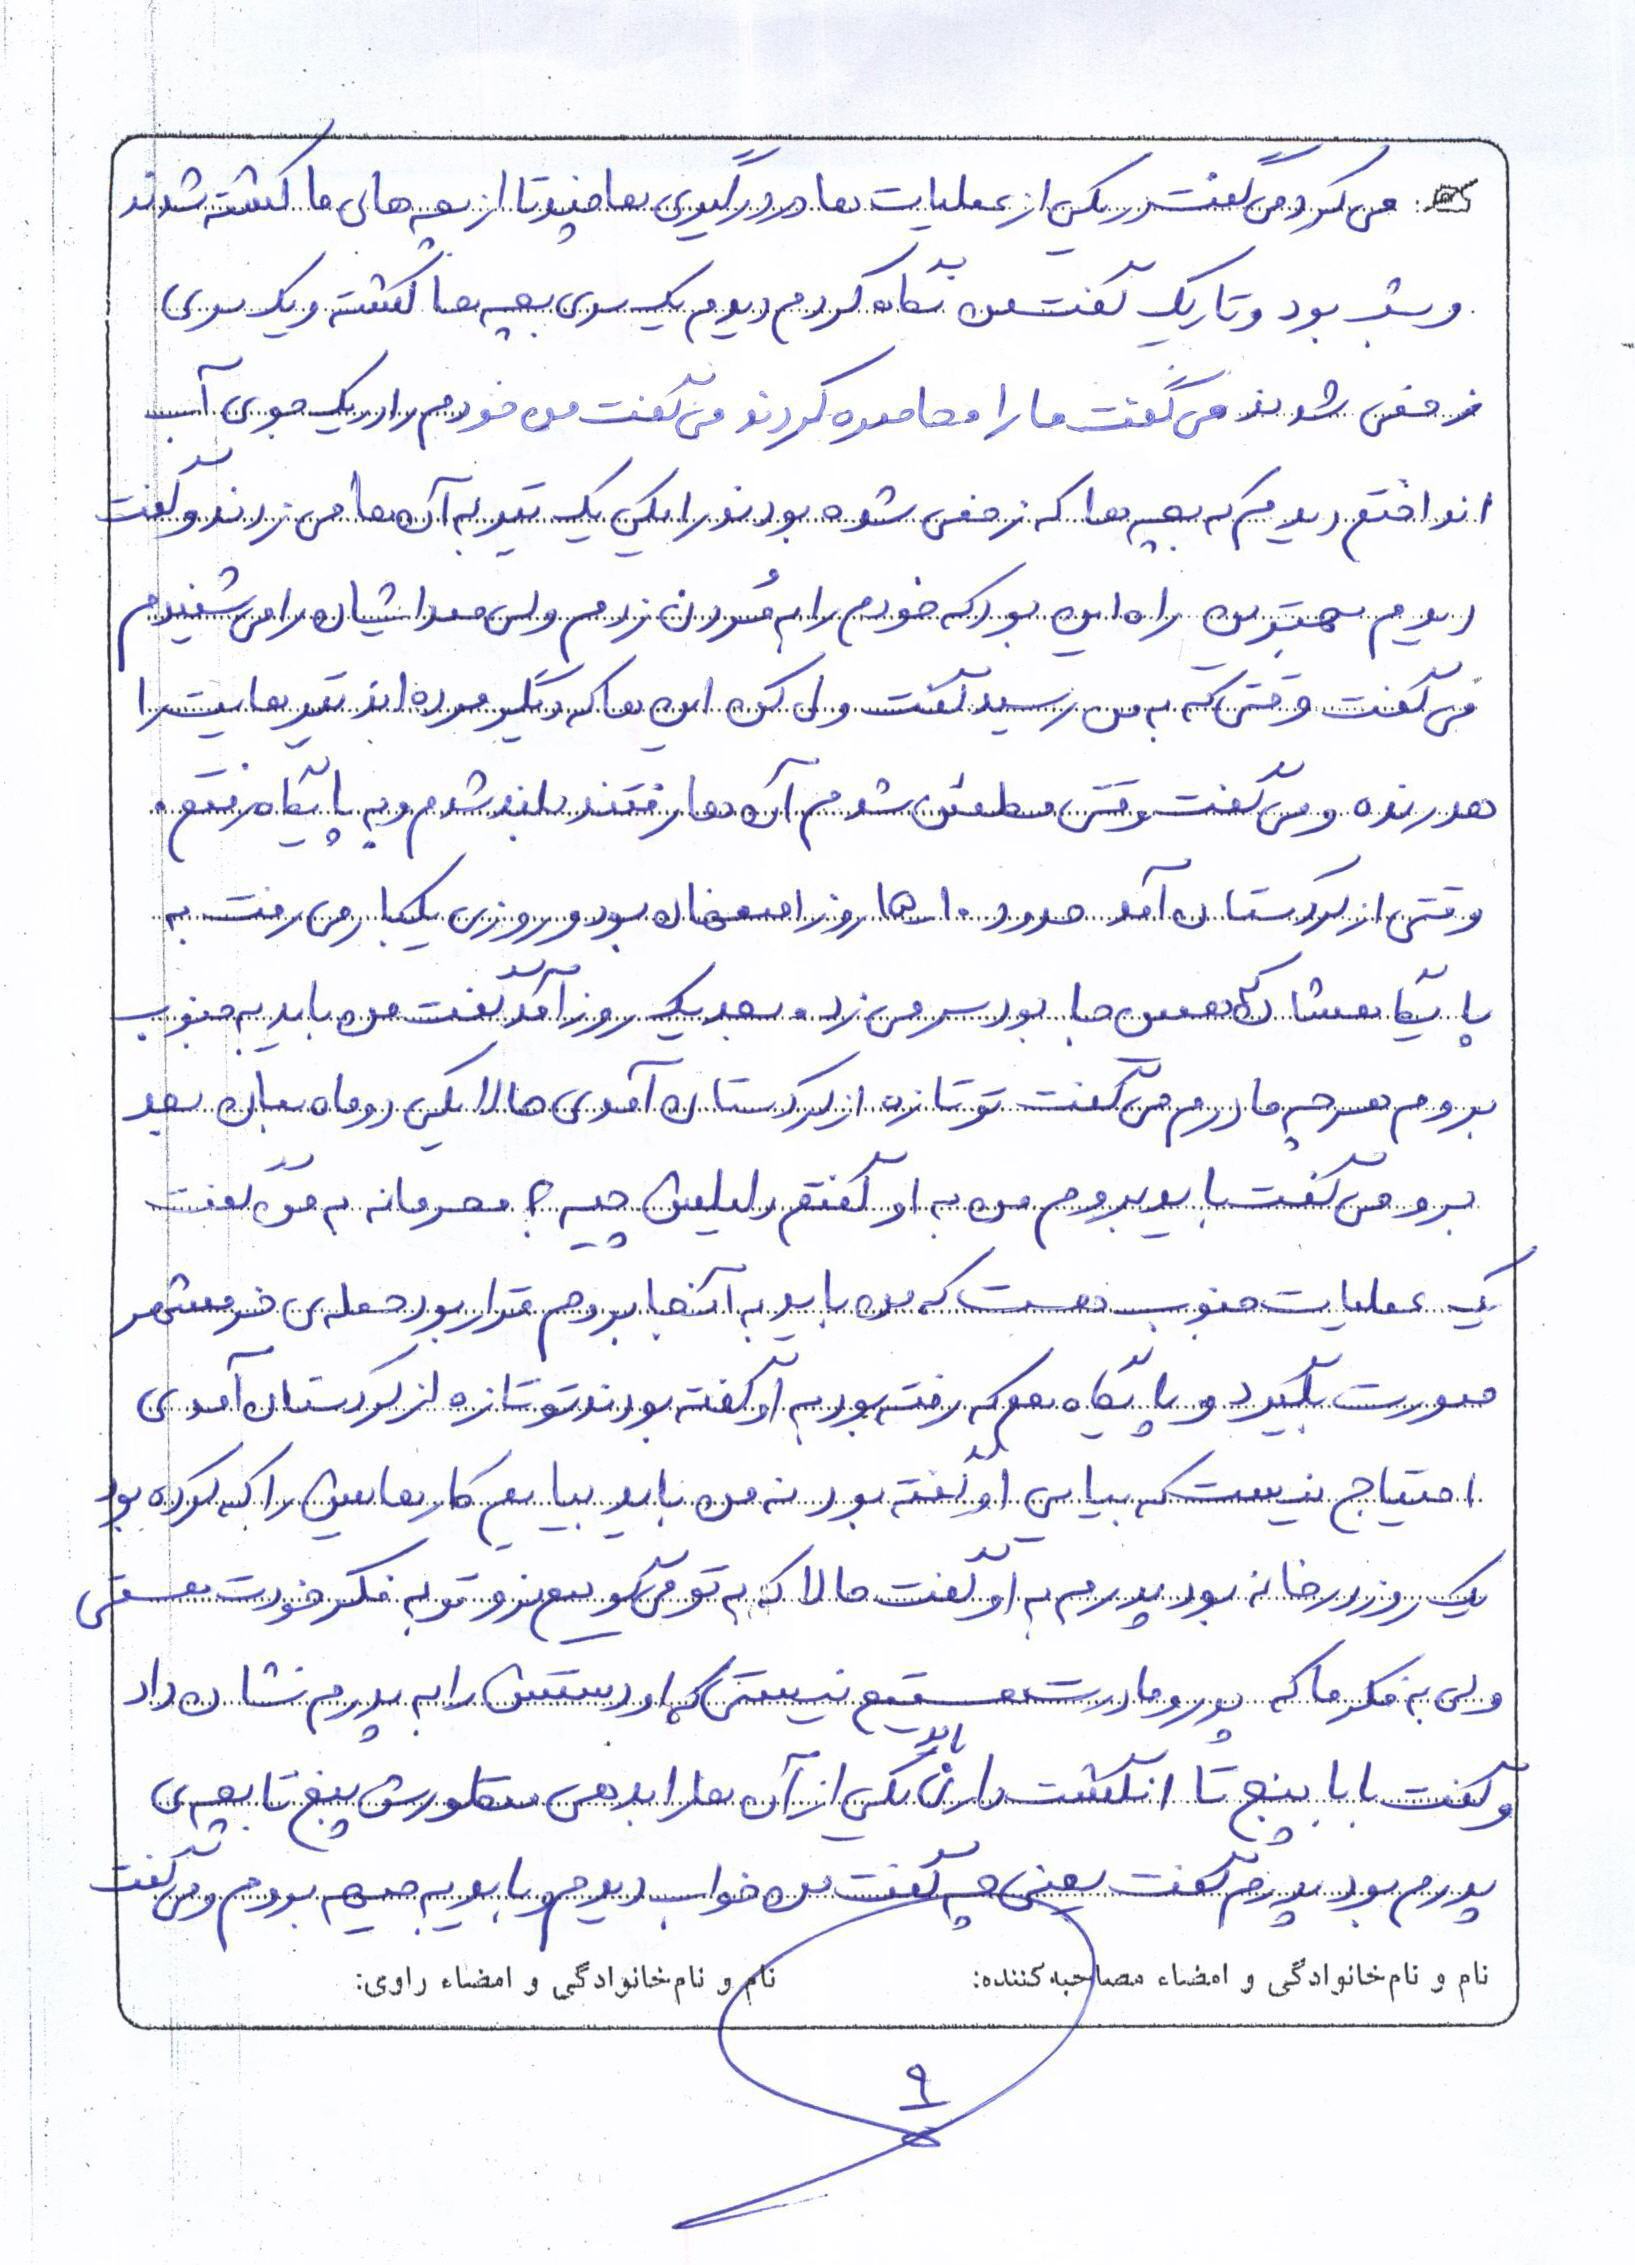 می کرد می گفت در یکی از عملیات ها در درگیری ها چند تا از بچه های ما کشته شدند
و شب بود و تاریک گفت من نگاه کردم دیدم یک سری بچه ها کشته و یک سری
زخمی شدند می گفت ما را محاصره کردند می گفت من خودم را در یک جوی آب
انداختم دیدم که بچه ها که زخمی شده بودند را یکی یک تیر به آن ها می زدند و گفت
دیدم بهترین راه این بود که خودم را به مُردن زدم ولی صدایشان را می شنیدم
می گفت وقتی که به من رسید گفت ول کن این ها که دیگر مرده اند تیرهایت را
هدر نده و می گفت وقتی مطمئن شدم آن ها رفتند بلند شدم و به پایگاه رفتم.
وقتی از کردستان آمد حدود ۱۰ ها روز اصفهان بود و روزی یکبار می رفت به
پایگاهشان که همین جا بود سر می زد. بعد یک روز آمد گفت من باید به جنوب
بروم هر چه مادرم می گفت تو تازه از کردستان آمدی حالا یکی دو ماه بمان بعد
برو می گفت باید بروم من به او گفتم دلیلش چیه؟ محرمانه به من گفت
یک عملیات جنوب هست که من باید به آنجا بروم قرار بود حمله ی خرمشهر
صورت بگیرد و پایگاه هم که رفته بود به او گفته بودند تو تازه از کردستان آمدی
احتیاج نیست که بیایی او گفته بود نه من باید بیایم کارهایش را که کرده بود
یک روز در خانه بود پدرم به او گفت حالا که به تو می گوییم نرو تو به فکر خودت هستی
ولی به فکر ما که پدر و مادرت هستیم نیستی که او دستش را به پدرم نشان داد
و گفت بابا پنج تا انگشت داری باید یکی از آن ها را بدهی منظورش پنج تا بچه ی
پدرم بود پدرم گفت یعنی چه گفت من خواب دیدم و باید به جبهه بروم و می گفت
نام و نام خانوادگی و امضاء مصاحبه کننده: نام و نام خانوادگی و امضاء راوی:
۹